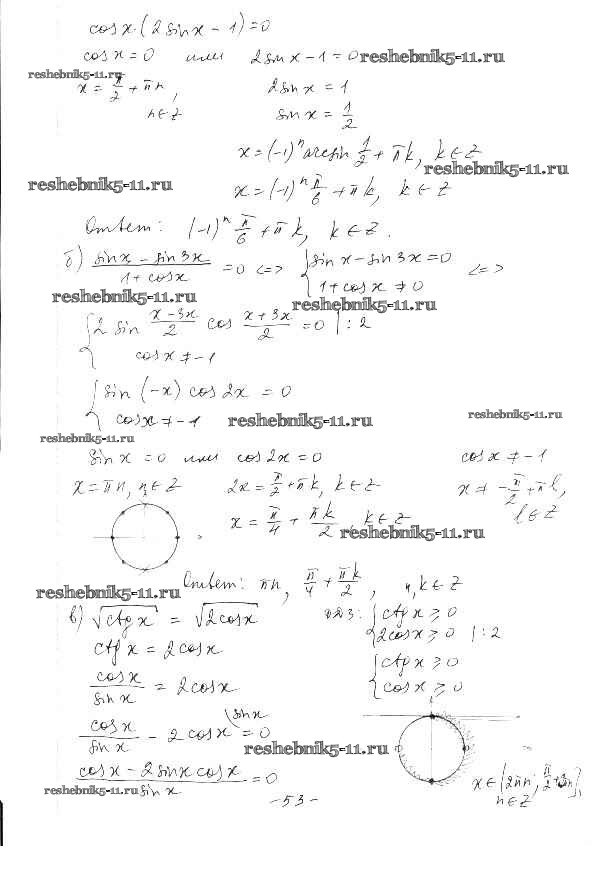 cos x · (2 sin x - 1) = 0
cos x = 0 или 2 sin x - 1 = 0 reshebnik5-11.ru
reshebnik5-11.ru
x = π/2 + πn, 2 sin x = 1
n ∈ Z sin x = 1/2
x = (-1)ⁿ arcsin 1/2 + πk, k ∈ Z
reshebnik5-11.ru
reshebnik5-11.ru x = (-1)ⁿ π/6 + πk, k ∈ Z
Ответ: (-1)ⁿ π/6 + πk, k ∈ Z.
б) (sin x - sin 3x)/(1 + cos x) = 0 <=> { sin x - sin 3x = 0 <=>
1 + cos x ≠ 0
reshebnik5-11.ru reshebnik5-11.ru
{ 2 sin (x - 3x)/2 cos (x + 3x)/2 = 0 | : 2
cos x ≠ -1
{ sin (-x) cos 2x = 0
cos x ≠ -1 reshebnik5-11.ru reshebnik5-11.ru
reshebnik5-11.ru
sin x = 0 или cos 2x = 0 cos x ≠ -1
x = πn, n ∈ Z 2x = π/2 + πk, k ∈ Z x ≠ -π/2 + πl,
l ∈ Z
x = π/4 + πk/2, k ∈ Z
reshebnik5-11.ru
reshebnik5-11.ru Ответ: πn, π/4 + πk/2, n, k ∈ Z
в) √(ctg x) = √(2cos x) ОДЗ: { ctg x ≥ 0
2cos x ≥ 0 | : 2
ctg x = 2cos x { ctg x ≥ 0
cos x ≥ 0
cos x/sin x = 2cos x
cos x/sin x - 2 cos x \sin x = 0
reshebnik5-11.ru
(cos x - 2 sin x cos x)/sin x = 0
reshebnik5-11.ru
x ∈ (2πn; π/2 + 2πn],
n ∈ Z
- 53 -